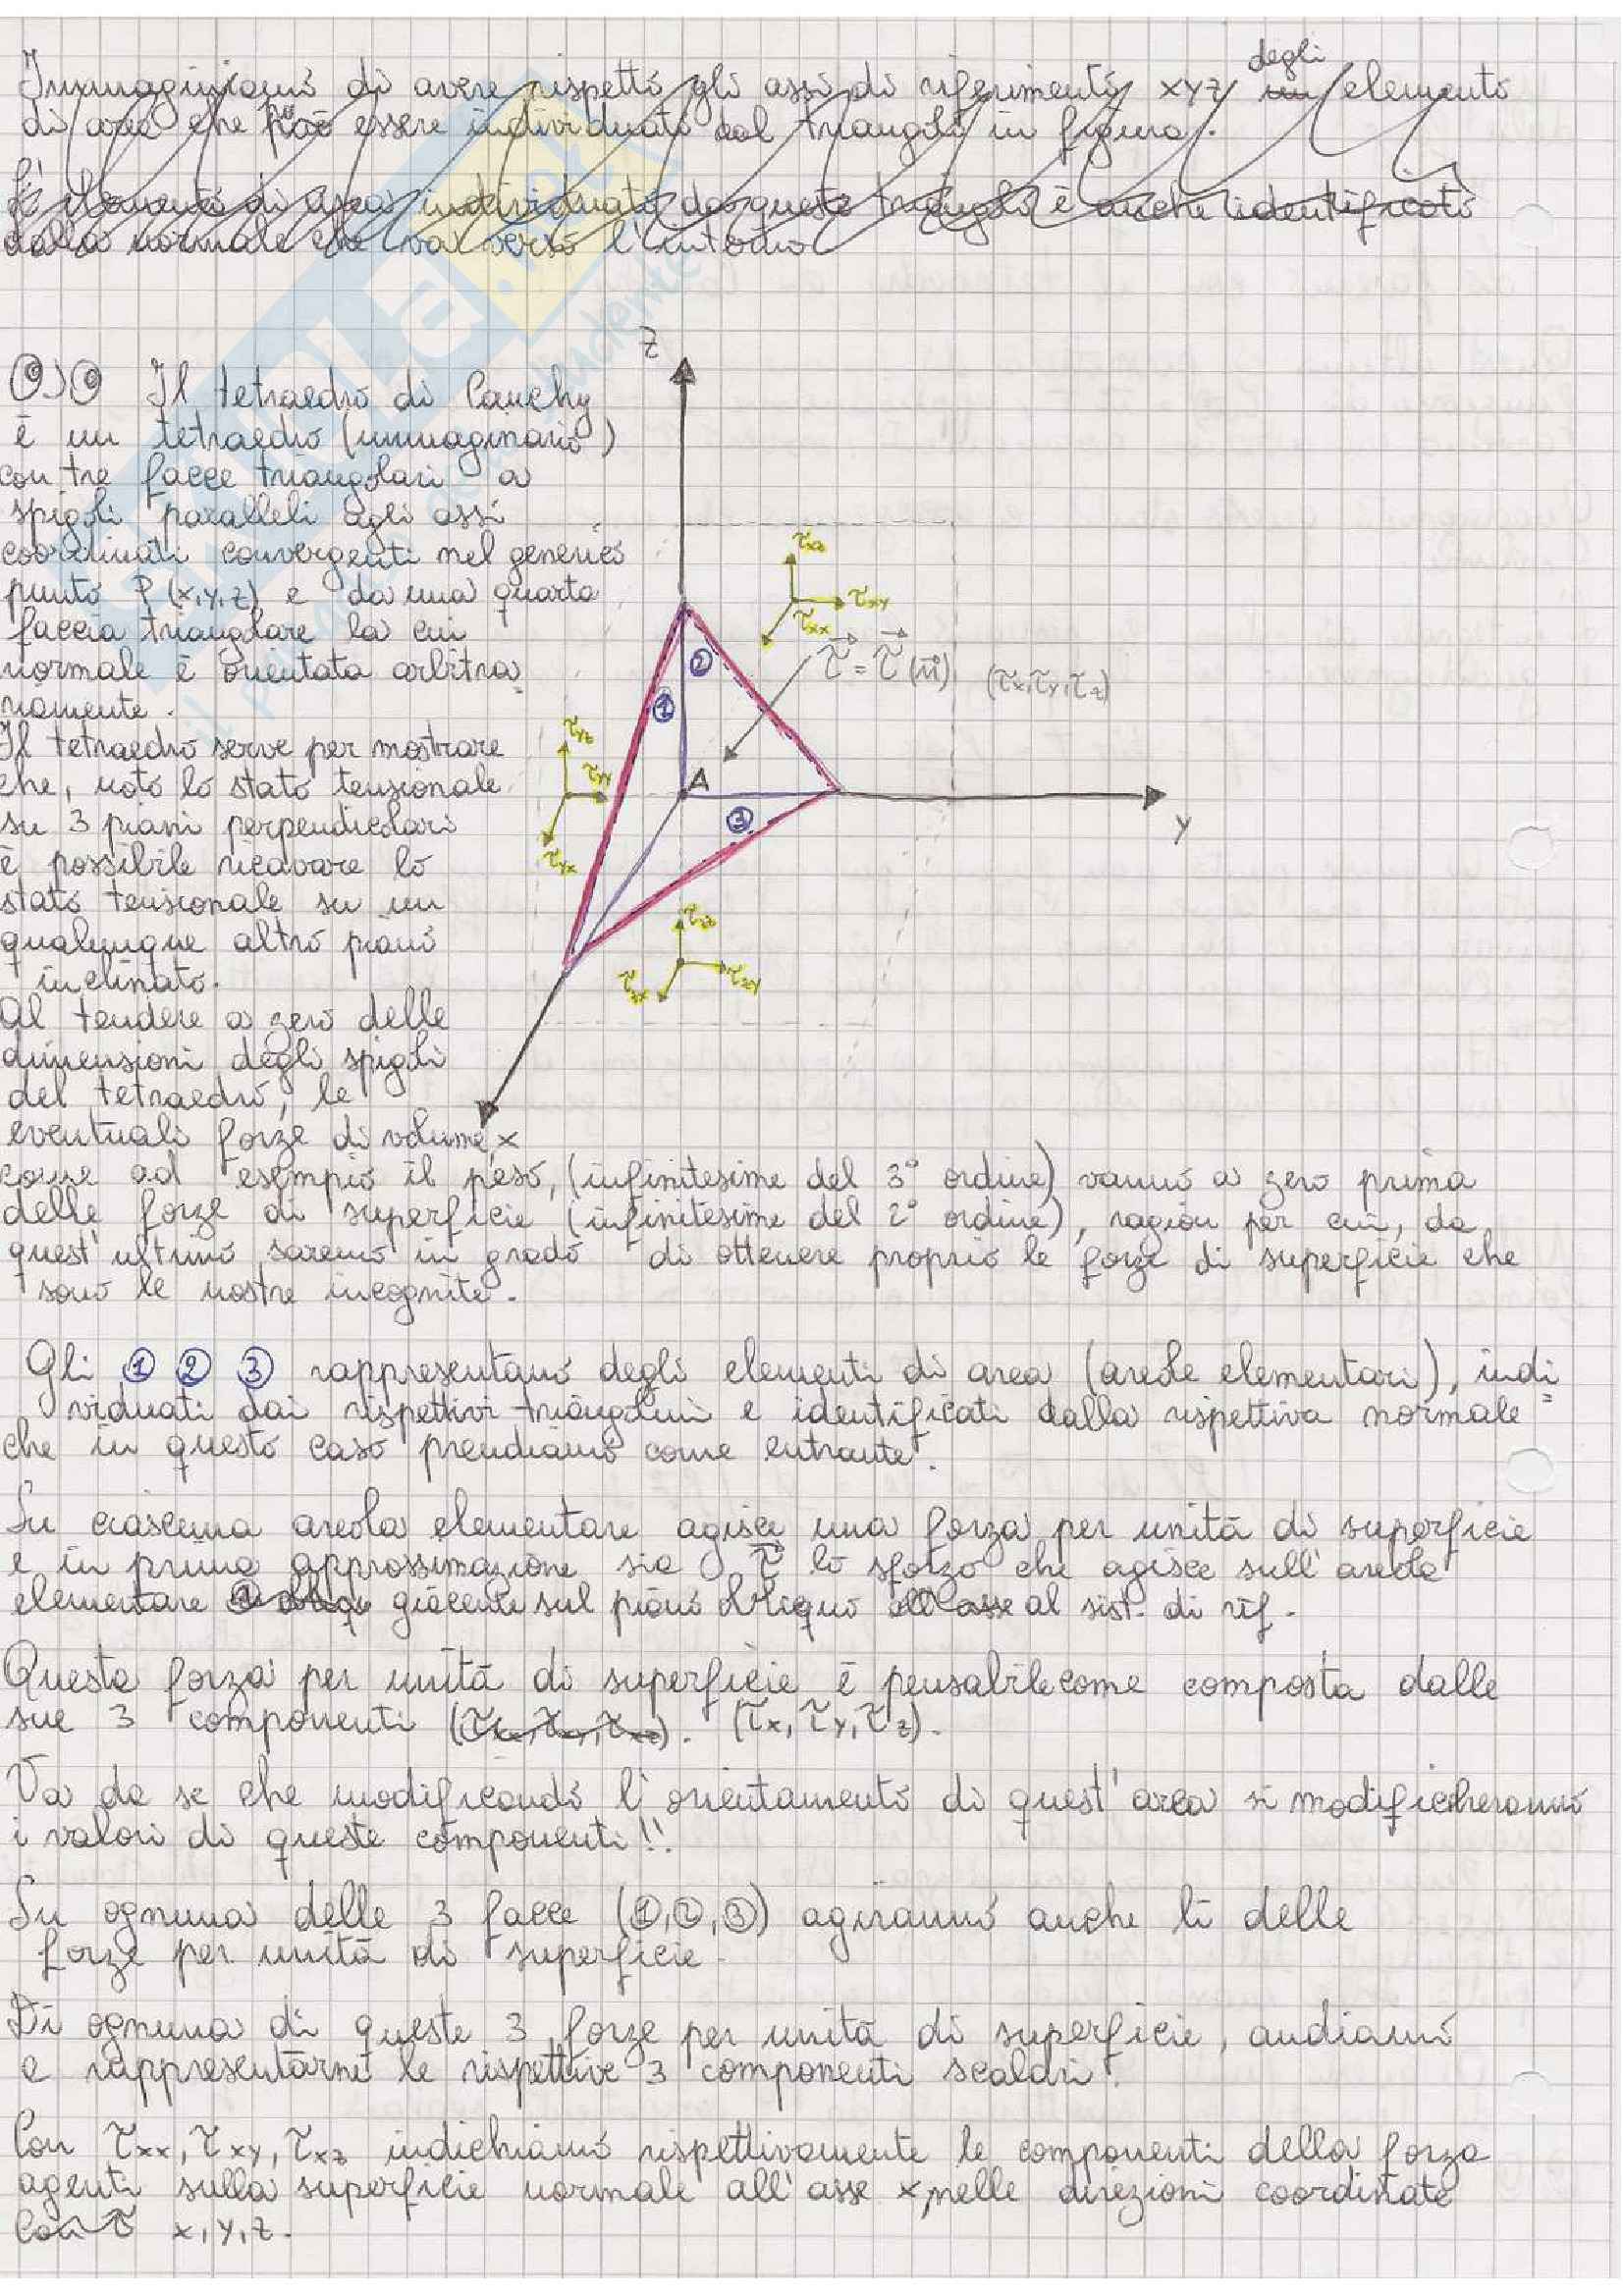 Immaginiamo di avere rispetto gli assi di riferimento xyz degli un elemento
di area che può essere individuato dal triangolo in figura.
L'elemento di area individuato da questo triangolo è anche identificato
dalla normale che va verso l'interno
Z
Il tetraedro di Cauchy
è un tetraedro (immaginario)
con tre facce triangolari a
spigoli paralleli agli assi
coordinati convergenti nel generico
punto P (x,y,z) e da una quarta
faccia triangolare la cui
normale è orientata arbitra
riamente.
Il tetraedro serve per mostrare
che, noto lo stato tensionale
su 3 piani perpendicolari
è possibile ricavare lo
stato tensionale su un
qualunque altro piano
inclinato.
Al tendere a zero delle
dimensioni degli spigoli
del tetraedro, le
eventuali forze di volume,
come ad esempio il peso, (infinitesime del 3° ordine) vanno a zero prima
delle forze di superficie (infinitesime del 2° ordine), ragion per cui, da
quest'ultimo saremo in grado di ottenere proprio le forze di superficie che
sono le nostre incognite.
τxz
τxy
τxx
τ⃗ = τ⃗ (n⃗) (τx, τy, τz)
②
①
τyz
τyy
τyx
A
③
Y
τzz
τzx τzy
x
Gli ① ② ③ rappresentano degli elementi di area (areole elementari), indi
viduati dai rispettivi triangolini e identificati dalla rispettiva normale
che in questo caso prendiamo come entrante.
Su ciascuna areola elementare agisce una forza per unità di superficie
e in prima approssimazione sia τ⃗ lo sforzo che agisce sull'areola
elementare giacente sul piano obliquo al sist. di rif.
Questa forza per unità di superficie è pensabile come composta dalle
sue 3 componenti (τxx, τxy, τxz). (τx, τy, τz).
Va da se che modificando l'orientamento di quest'area si modificheranno
i valori di queste componenti!!
Su ognuna delle 3 facce (①,②,③) agiranno anche lì delle
forze per unità di superficie.
Di ognuna di queste 3 forze per unità di superficie, andiamo
a rappresentarne le rispettive 3 componenti scalari.
Con τxx, τxy, τxz indichiamo rispettivamente le componenti della forza
agenti sulla superficie normale all'asse x, nelle direzioni coordinate
Con τ x, y, z.